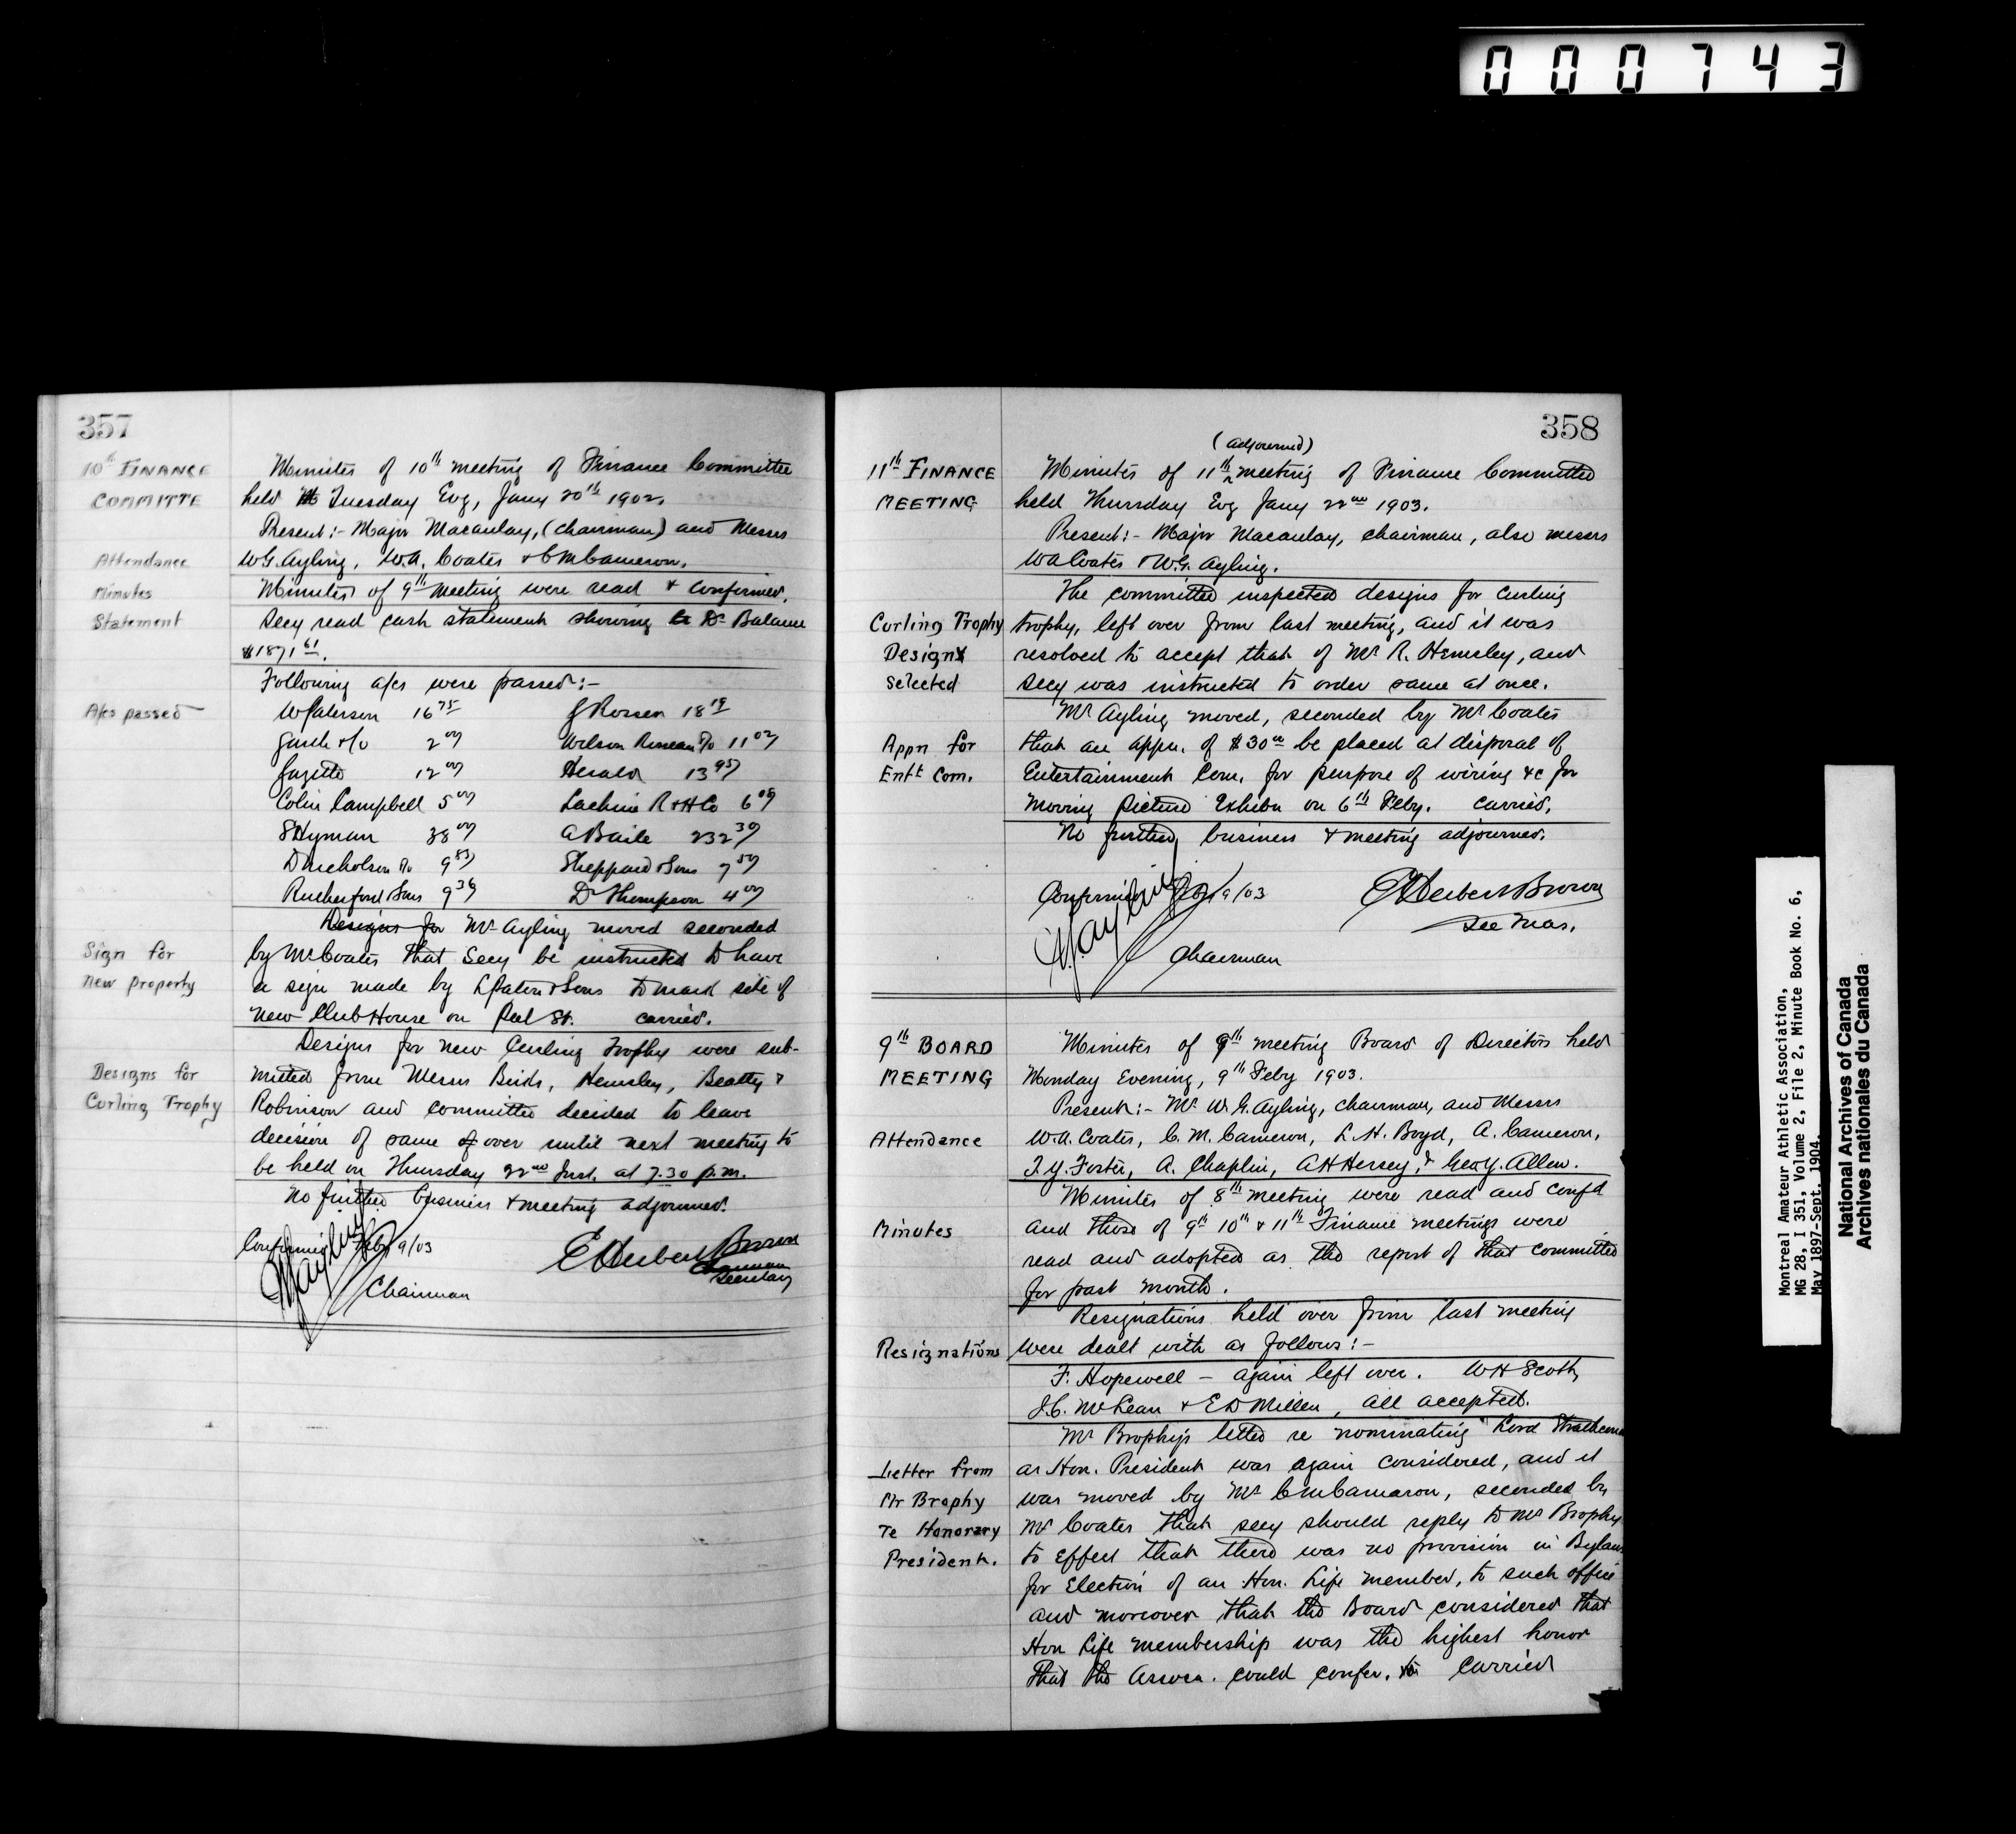 000743
357
10th FINANCE COMMITTE
Minutes of 10th meeting of Finance Committee
held Tuesday Evg, Jany 20th 1902.
Present:- Major Macaulay, (Chairman) and Messrs
Attendance
W.G. Ayling, W.A. Coates & C M Cameron.
Minutes
Minutes of 9th meeting were read & confirmed.
Statement
Secy read cash statement showing Dr Balance
$1871 61.
Following a/cs were passed:-
A/cs passed
W Paterson 16 75
J Rosser 18 19
2 00
Wilson 11 02
Gazette 12 00
Herald 13 95
Colin Campbell 5 00
Lachine R & H Co 6 05
S Hyman 38 00
A Baile 232 30
D Nicholson 9 83
Sheppard & Sons 7 50
Rutherford & Sons 9 36
Dr Thompson 4 00
Designs for Mr Ayling moved seconded
Sign for
by Mr Coates that Secy be instructed to have
New property
a sign made by L Paton & Sons to mark site of
new Club House on Peel St. carried.
Designs for new Curling Trophy were sub-
Designs for
mitted from Messrs Birks, Hemsley, Beatty &
Curling Trophy
Robinson and committee decided to leave
decision of same over until next meeting to
be held on Thursday 22nd Inst. at 7.30 p.m.
No further business & meeting adjourned.
Confirmed Feby 9/03
W G Ayling
Chairman
E Herbert Brown
Secretary
358
(adjourned)
11th FINANCE
Minutes of 11th meeting of Finance Committee
MEETING
held Thursday Evg Jany 22nd 1903.
Present:- Major Macaulay, chairman, also messrs
W A Coates & W.G. Ayling.
The committee inspected designs for curling
Curling Trophy
trophy, left over from last meeting, and it was
Design
resolved to accept that of Mr R. Hemsley, and
Selected
Secy was instructed to order same at once.
Mr Ayling moved, seconded by Mr Coates
Appn for
that an appn. of $30 00 be placed at disposal of
Entt Com.
Entertainment Com. for purpose of wiring &c for
moving picture Exhibn on 6th Feby. carried.
No further business & meeting adjourned.
Confirmed Feby 9/03
W G Ayling
Chairman
E Herbert Brown
Sec Treas.
9th BOARD
Minutes of 9th meeting Board of Directors held
MEETING
Monday Evening, 9th Feby 1903.
Present:- Mr W.G. Ayling, chairman, and Messrs
Attendance
W.A. Coates, C.M. Cameron, L.H. Boyd, A. Cameron,
T.Y. Foster, A. Chaplin, A H Hersey, & Geo Y. Allen.
Minutes of 8th meeting were read and confd
Minutes
and those of 9th 10th & 11th Finance meetings were
read and adopted as the report of that committee
for past month.
Resignations held over from last meeting
Resignations
were dealt with as follows:-
F. Hopewell - again left over. W H Scott,
J.C. McLean & E D Millen, all accepted.
Mr Brophy's letter re nominating Lord Strathcona
Letter from
as Hon. President was again considered, and it
Mr Brophy
was moved by Mr C M Cameron, seconded by
re Honorary
Mr Coates that secy should reply to Mr Brophy
President.
to effect that there was no provision in Bylaws
for Election of an Hon. Life member, to such office
and moreover that the Board considered that
Hon Life membership was the highest honor
that the Assocn. could confer. Carried
Montreal Amateur Athletic Association,
MG 28, I 351, Volume 2, File 2, Minute Book No. 6,
May 1897-Sept. 1904.
National Archives of Canada
Archives nationales du Canada